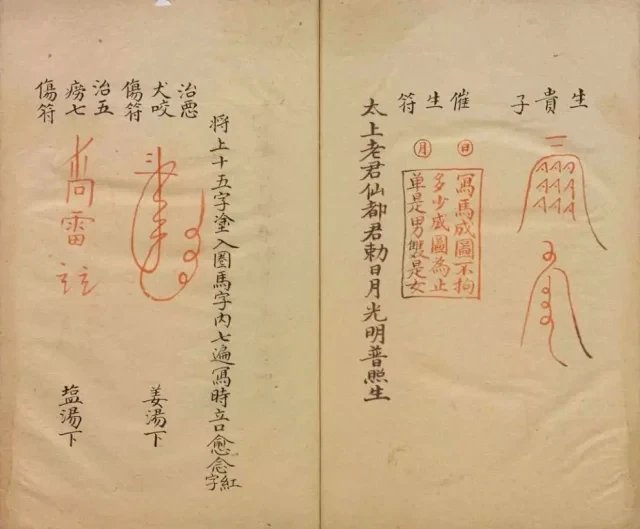 生貴子
催生符
日
月
寫馬成圖不拘
多少成圖為止
单是男雙是女
太上老君仙都君勅日月光明普照生
将上十五字塗入圈馬字内七遍寫時立口愈念紅字
治悪犬咬傷符
姜湯下
治五痨七傷符
雷
塩湯下